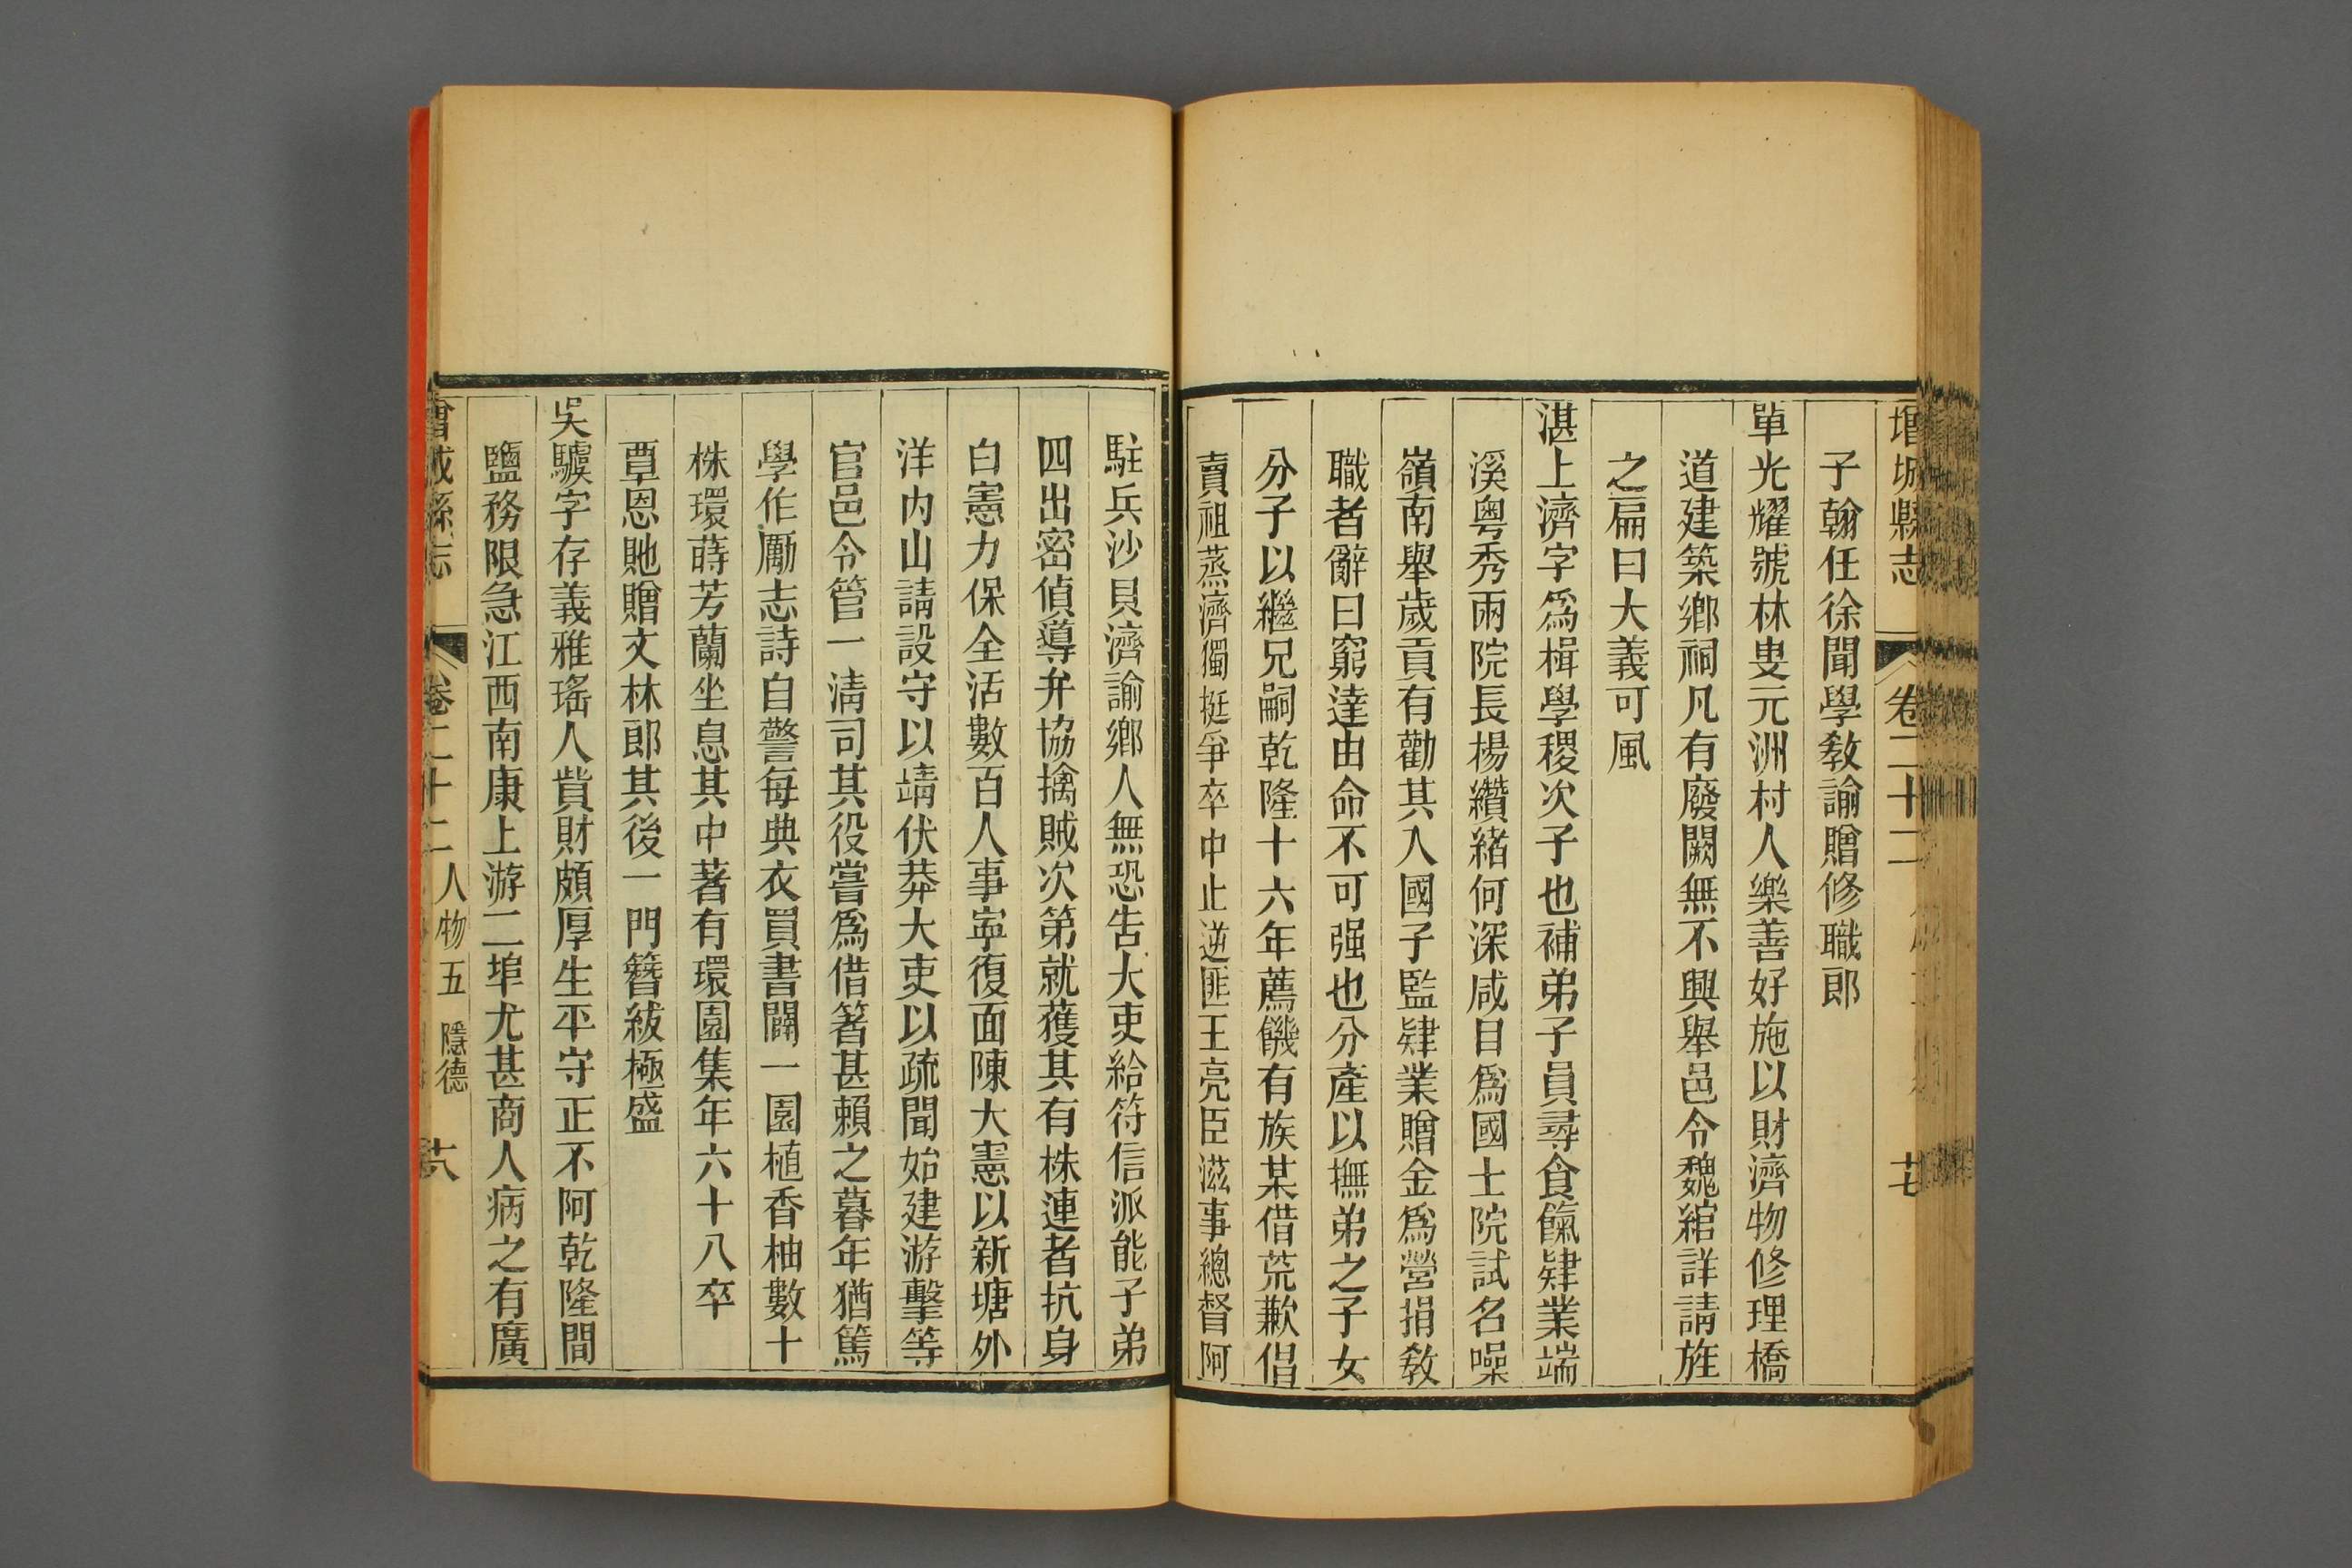 增城縣志 卷二十二 十七
子翰任徐聞學敎諭贈修職郎
單光耀號林叟元洲村人樂善好施以財濟物修理橋
道建築鄉祠凡有廢闕無不興舉邑令魏綰詳請旌
之扁曰大義可風
湛上濟字爲楫學稷次子也補弟子員尋食餼肄業端
溪粤秀兩院長楊纘緖何深咸目爲國士院試名噪
嶺南舉歲貢有勸其入國子監肄業贈金爲營捐敎
職者辭曰窮達由命不可强也分產以撫弟之子女
分子以繼兄嗣乾隆十六年薦饑有族某借荒歉倡
賣祖蒸濟獨挺爭卒中止逆匪王亮臣滋事總督阿
駐兵沙貝濟諭鄉人無恐吿大吏給符信派能子弟
四出密偵導弁協擒賊次第就獲其有株連者抗身
白憲力保全活數百人事寧復面陳大憲以新塘外
洋内山請設守以靖伏莽大吏以疏聞始建游擊等
官邑令管一淸司其役嘗爲借箸甚賴之暮年猶篤
學作勵志詩自警每典衣買書闢一園植香柚數十
株環蒔芳蘭坐息其中著有環園集年六十八卒
覃恩貤贈文林郎其後一門簪紱極盛
吳驥字存義雅瑤人貲財頗厚生平守正不阿乾隆間
鹽務限急江西南康上游二埠尤甚商人病之有廣
增城縣志 卷二十二 人物五 隱德 十八